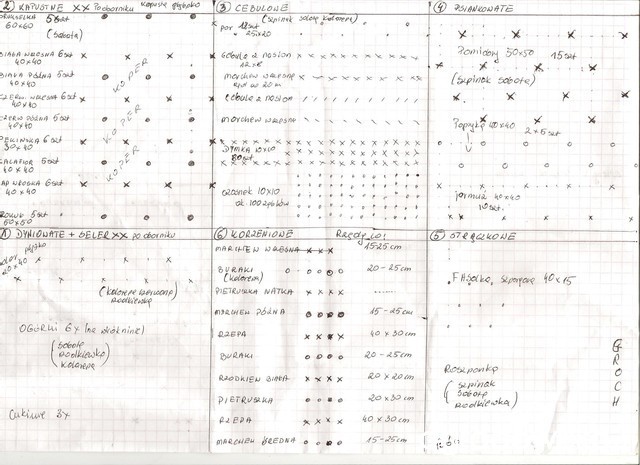 2) KAPUSTNE XX Po oborniku kapusta głęboko
BRUKSELKA 5szt
60x60
(sałata)
BIAŁA WCZESNA 6szt
40x40
BIAŁA PÓŹNA 5szt
40x40
CZERW. WCZESNA 6szt
40x40
CZERW PÓŹNA 5szt
40x40
PEKIŃSKA 6szt
30x40
KALAFIOR 5szt
40x40
KAP WŁOSKA 6szt
40x40
5szt
50x50
KOPER
KOPER
KOPER
KOPER
3) CEBULOWE
(szpinak sałata kalarepa)
por 12szt
25x20
cebula z nasion
marchew wczesna
cebula z nasion
marchew wczesna
DYMKA 10x10
80szt
czosnek 10x10
ok. 100 ząbków
4) PSIANKOWATE
Pomidory 50x50 15szt
(szpinak sałata)
Papryka 40x40
2x5szt
jarmuż 40x40
10szt
1) DYNIOWATE + SELER XX po oborniku
seler
20x40
(kalarepa czerwona
rzodkiewka)
OGÓRKI 6x (na włókninie)
(sałata
rzodkiewka
kalarepa)
Cukinie 3x
6) KORZENIOWE Rzędy co:
MARCHEW WCZESNA x x x 15-25cm
BURAKI
(kalarepa) 20-25cm
PIETRUSZKA NATKA x x x x
MARCHEW PÓŹNA 15-25cm
RZEPA x x x x 40x30cm
BURAKI 20-25cm
RZODKIEW BIAŁA x x x x 20x20cm
PIETRUSZKA 20x30cm
RZEPA x x x x 40x30cm
MARCHEW ŚREDNA 15-25cm
5) STRĄCZKOWE
FASOLKA szparagowa 40x15
Roszponka
(szpinak
sałata
rzodkiewka)
G
R
O
C
H